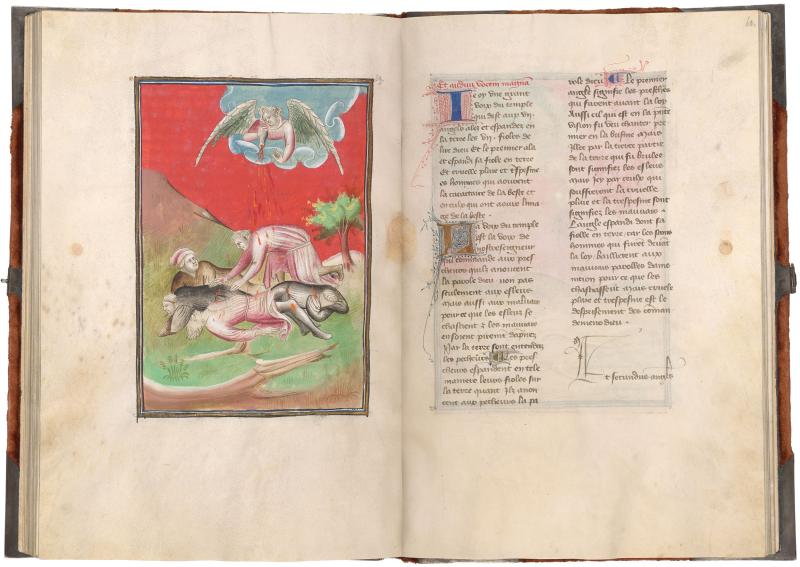 Et audivi vocem magna
Ie oy une grant
voix du temple
qui dist aux vii
angels alez et espandez en
la terre les vii fioles de
lire dieu Et le premier ala
et espandi sa fiole en terre
et cruelle plaie et trespesme
es hommes qui avoient
la caractaire de la beste et
en ceulx qui ont aoure lima
ge de la beste
La voix du temple
est la voix de
nostreseigneur
qui commande aux pres
cheurs quilz anoncent
la parole dieu non pas
seulement aux esleus
mais aussi aux mauvais
pour ce que les esleus se
chastient et les mauvais
en soient pirement dapnez
Par la terre sont entendus
les pecheurs Les pres
cheurs espandent en tele
maniere leurs fioles sur
la terre quant ilz anon
cent aux pecheurs la pa
role dieu Le premier
angle signifie les presches
qui furent avant la loy
Aussi cil qui est en la pre
vision fu veu chanter pre
mier en la busine Mais
illec par la tierce partie
de la terre qui fu brulee
sont signifiez les esleus
Mais icy par ceulx qui
souffrerent la cruelle
plaie et la trespesme sont
signifiez les mauvais
Langle espandi dont sa
fiolle en terre car les sains
hommes qui furent devant
la loy baillerent aux
mauvais paroles dame
nition pour ce que ilz
chastiassent mais cruele
plaie et trespesme est le
despisement des coman
demens dieu
Et secundus angels